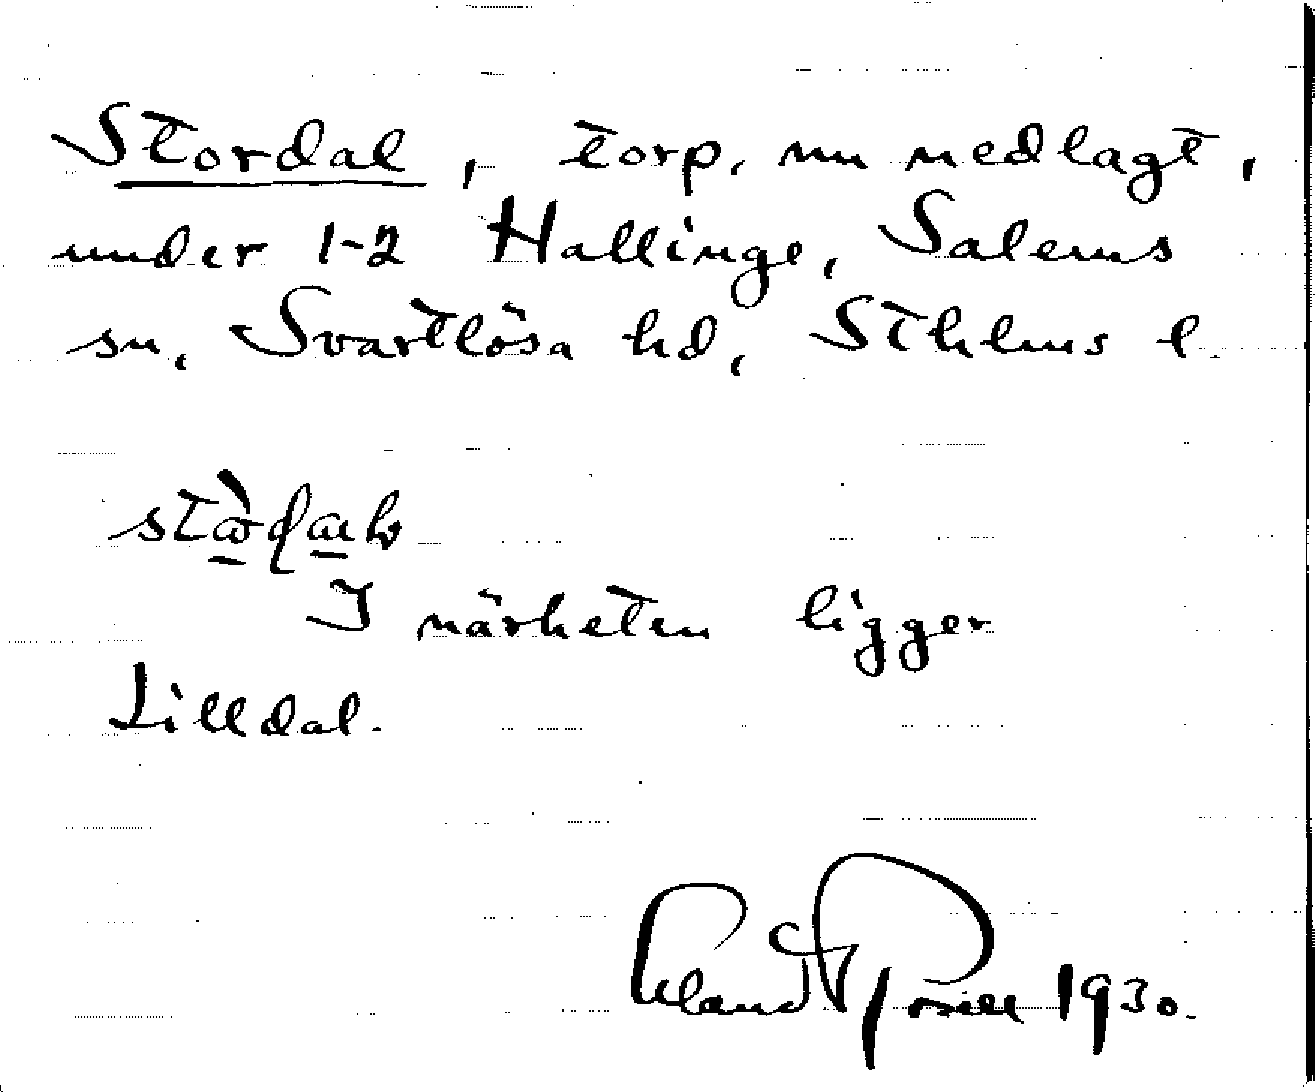 Stordal, torp, nu nedlagt,
under 1-2 Hallinge, Salems
sn, Svartlösa hd, Sthlms l.
I närheten ligger
Lilldal.
1930.